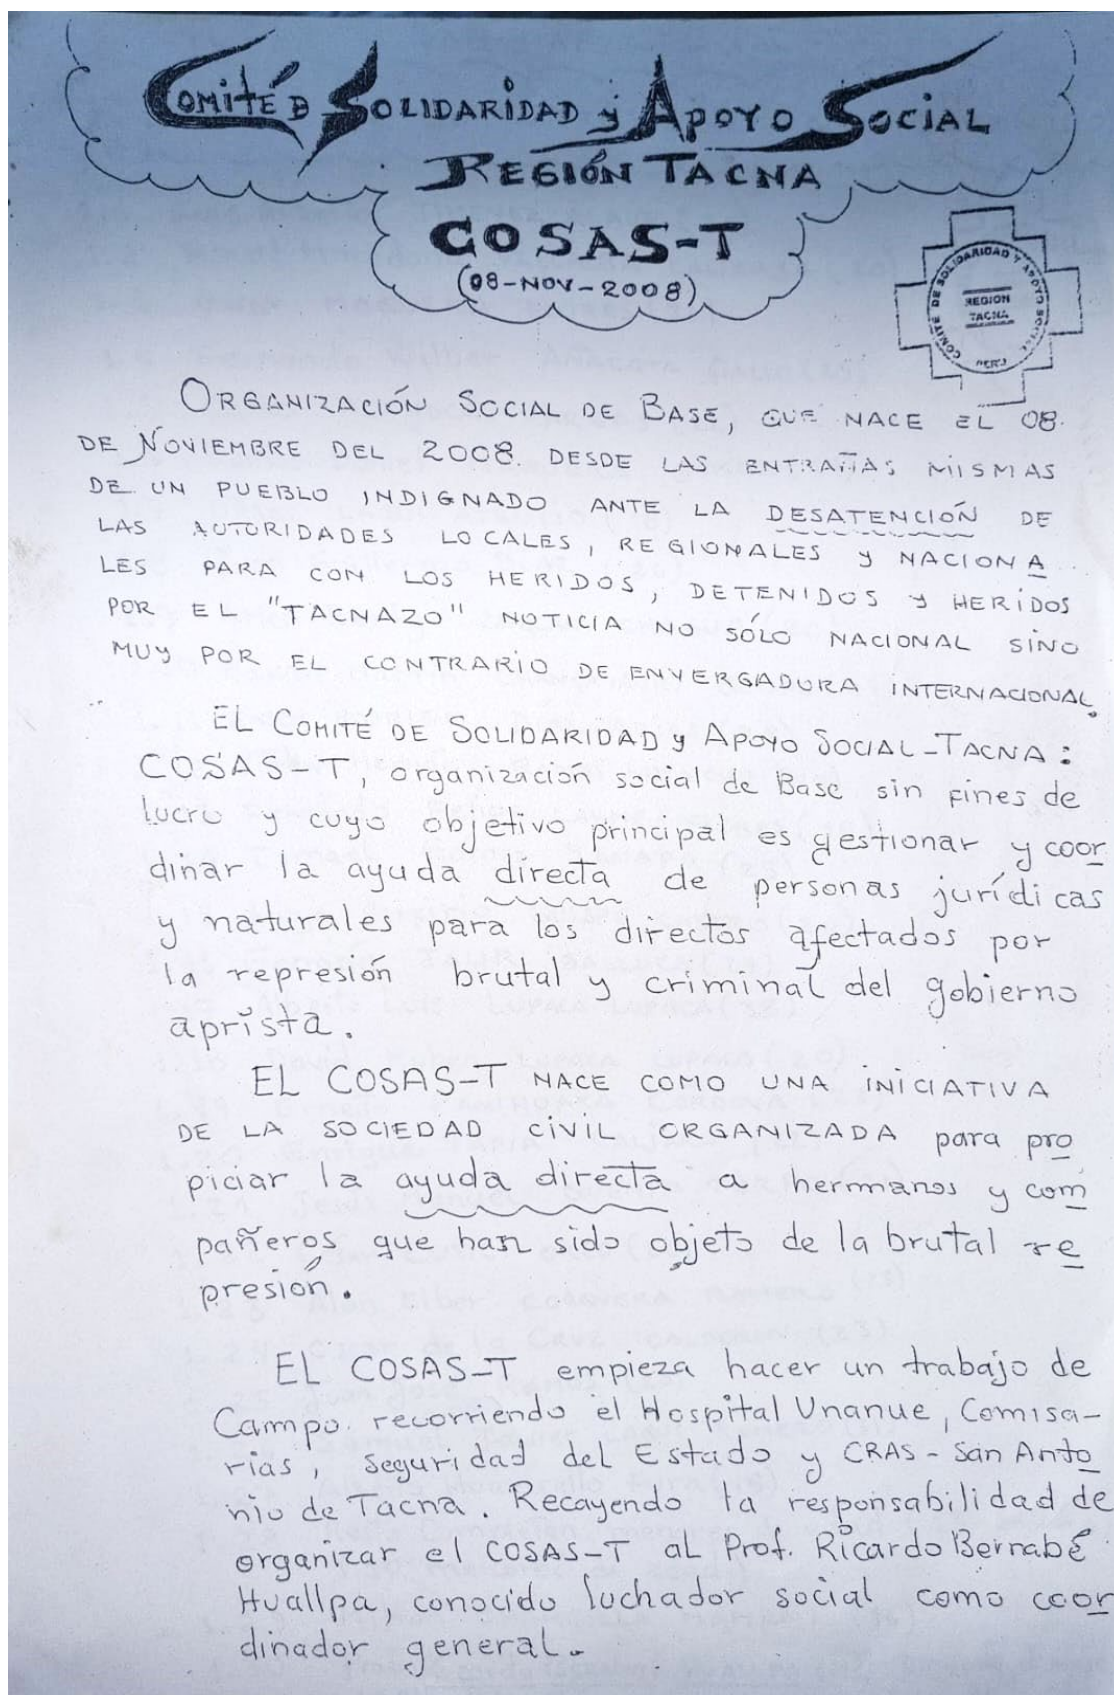 COMITÉ D SOLIDARIDAD y APOYO SOCIAL
REGIÓN TACNA
COSAS-T
(08-NOV-2008)
COMITÉ DE SOLIDARIDAD Y APOYO SOCIAL
REGION
TACNA
PERÚ
ORGANIZACIÓN SOCIAL DE BASE, QUE NACE EL 08
DE NOVIEMBRE DEL 2008 DESDE LAS ENTRAÑAS MISMAS
DE UN PUEBLO INDIGNADO ANTE LA DESATENCIÓN DE
LAS AUTORIDADES LOCALES, REGIONALES y NACIONA
LES PARA CON LOS HERIDOS, DETENIDOS y HERIDOS
POR EL "TACNAZO" NOTICIA NO SÓLO NACIONAL SINO
MUY POR EL CONTRARIO DE ENVERGADURA INTERNACIONAL.
EL COMITÉ DE SOLIDARIDAD y APOYO SOCIAL-TACNA:
COSAS-T, organización social de Base sin fines de
lucro y cuyo objetivo principal es gestionar y coor
dinar la ayuda directa de personas jurídicas
y naturales para los directos afectados por
la represión brutal y criminal del gobierno
aprista.
EL COSAS-T NACE COMO UNA INICIATIVA
DE LA SOCIEDAD CIVIL ORGANIZADA para pro
piciar la ayuda directa a hermanos y com
pañeros que han sido objeto de la brutal re
presión.
EL COSAS-T empieza hacer un trabajo de
Campo recorriendo el Hospital Unanue, Comisa-
rías, Seguridad del Estado y CRAS-San Anto
nio de Tacna. Recayendo la responsabilidad de
organizar el COSAS-T al Prof. Ricardo Bernabé
Huallpa, conocido luchador social como coor
dinador general.-